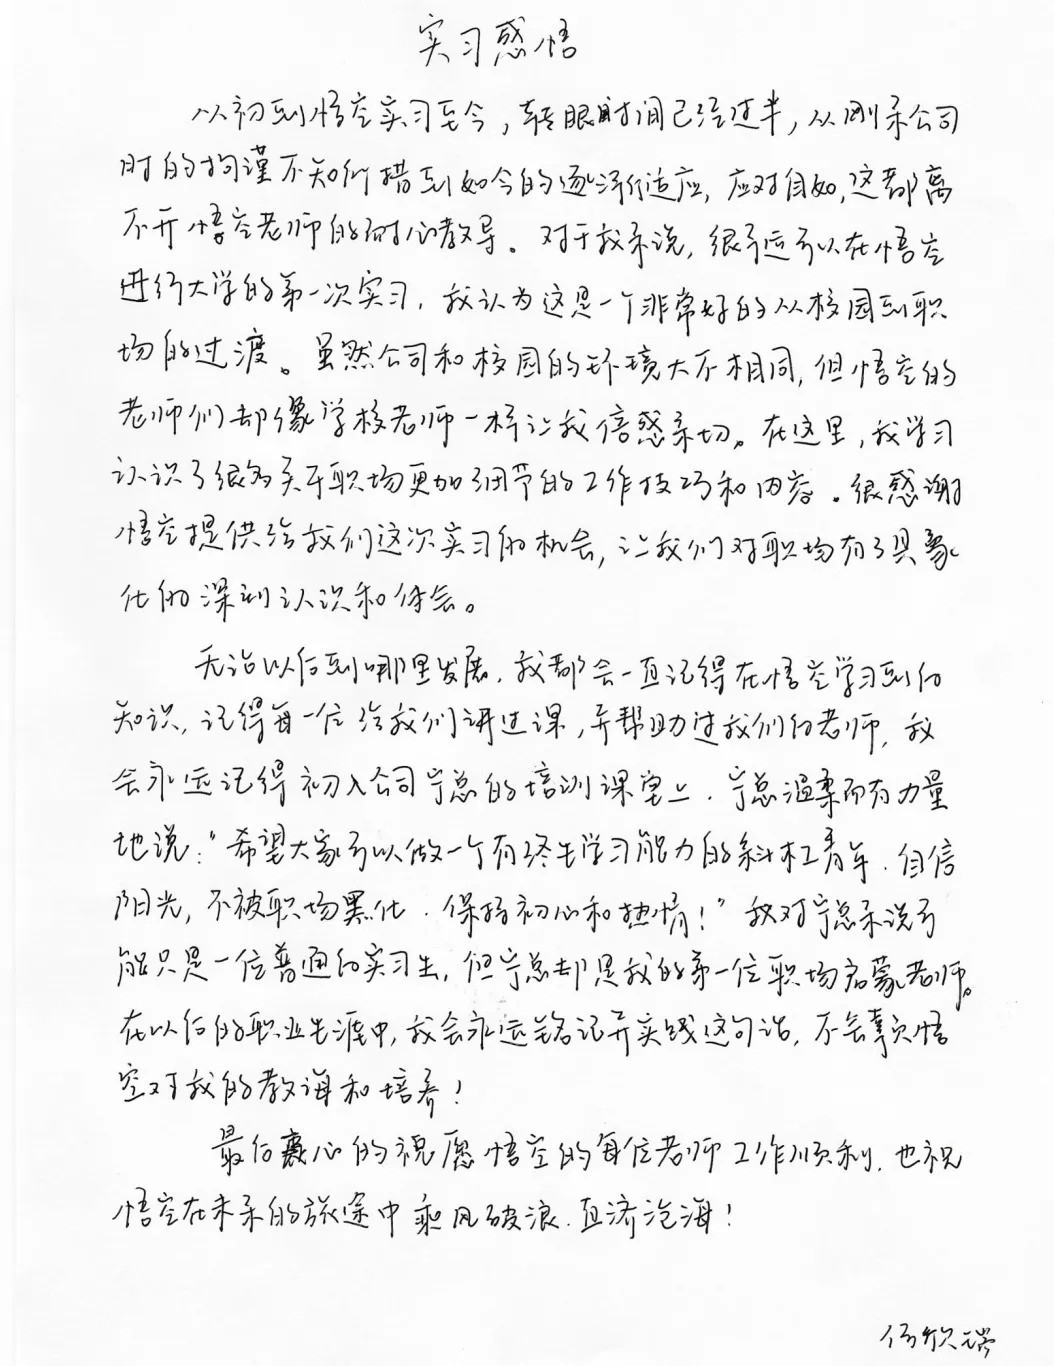 实习感悟
从初到悟空实习至今，转眼时间已经过半，从刚来公司
时的拘谨不知所措到如今的逐渐适应，应对自如，这都离
不开悟空老师的耐心教导。对于我来说，很幸运可以在悟空
进行大学的第一次实习，我认为这是一个非常好的从校园到职
场的过渡。虽然公司和校园的环境大不相同，但悟空的
老师们却像学校老师一样让我倍感亲切。在这里，我学习
认识了很多关于职场更加细节的工作技巧和内容。很感谢
悟空提供给我们这次实习的机会，让我们对职场有了具象
化的深刻认识和体会。
无论以后到哪里发展，我都会一直记得在悟空学习到的
知识，记得每一位给我们讲过课，并帮助过我们的老师，我
会永远记得初入公司宁总的培训课堂上，宁总温柔而有力量
地说："希望大家可以做一个有终生学习能力的斜杠青年，自信
阳光，不被职场黑化，保持初心和热情！"我对宁总来说可
能只是一位普通的实习生，但宁总却是我的第一位职场启蒙老师。
在以后的职业生涯中，我会永远铭记并实践这句话，不会辜负悟
空对于我的教诲和培养！
最后衷心的祝愿悟空的每位老师工作顺利，也祝
悟空在未来的旅途中乘风破浪，直济沧海！